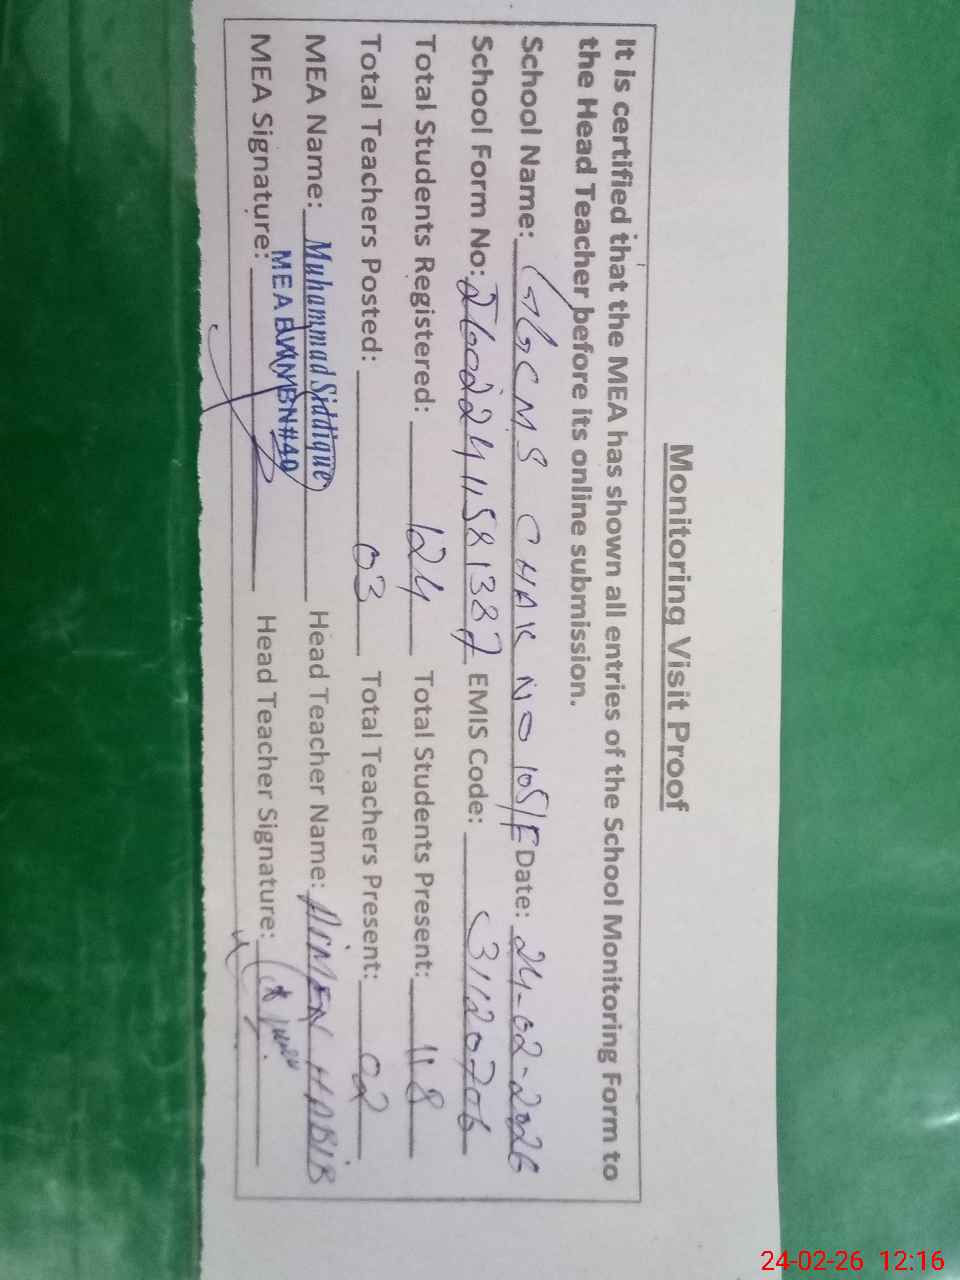 Monitoring Visit Proof
It is certified that the MEA has shown all entries of the School Monitoring Form to
the Head Teacher before its online submission.
School Name: GGCMS CHAK NO 105/E Date: 24-02-2026
School Form No: EMIS Code: 31120706
Total Students Registered: 124 Total Students Present: 118
Total Teachers Posted: 03 Total Teachers Present: 02
MEA Name: Muhammad Siddique Head Teacher Name: AIMEN HABIB
MEA BWN BN#40
MEA Signature: Head Teacher Signature:
24-02-26 12:16